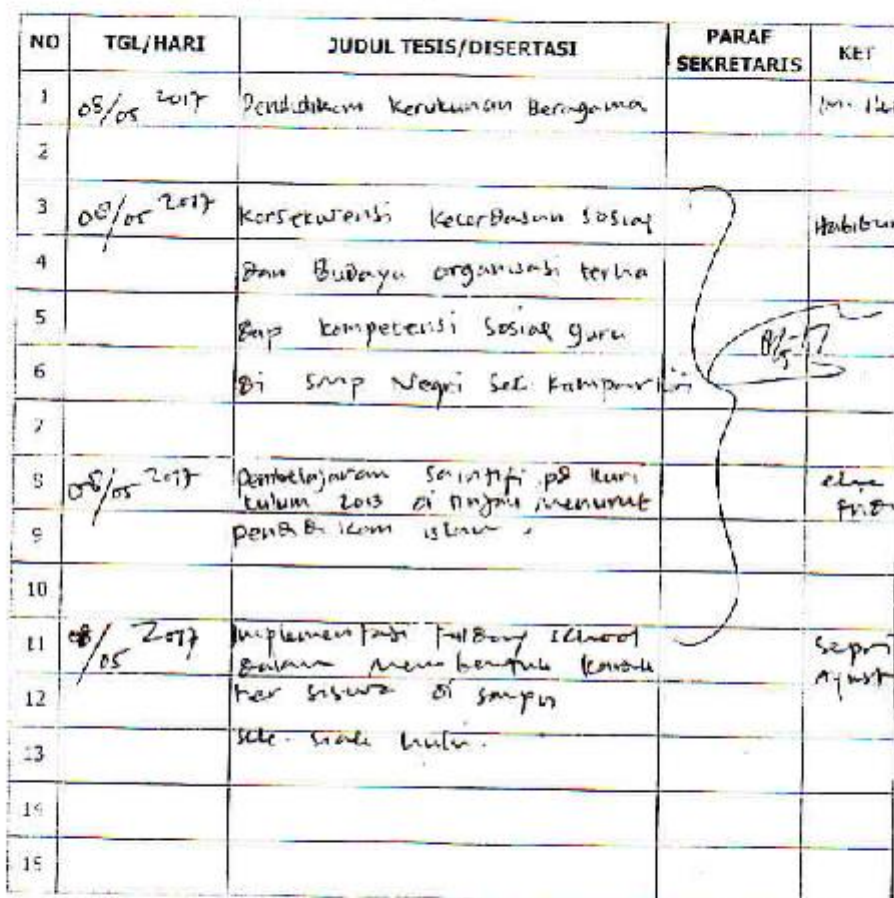 NO TGL/HARI JUDUL TESIS/DISERTASI PARAF SEKRETARIS KET
1 08/05 2017 Pendidikan Kerukunan Beragama
2
3 08/05 2017 Konsekwensi Kecerdasan Sosial
4 dan Budaya organisasi terha
5 dap kompetensi Sosial guru
6 di SMP Negri Sek. Kampar Kiri
7
8 08/05 2017 Pembelajaran Saintifi pd Kuri
kulum 2013 di tinjau menurut
9 pendidikan islam.
10
11 08/05 2017 Implementasi Fullday School
dalam membentuk karak
12 ter siswa di
13
14
15